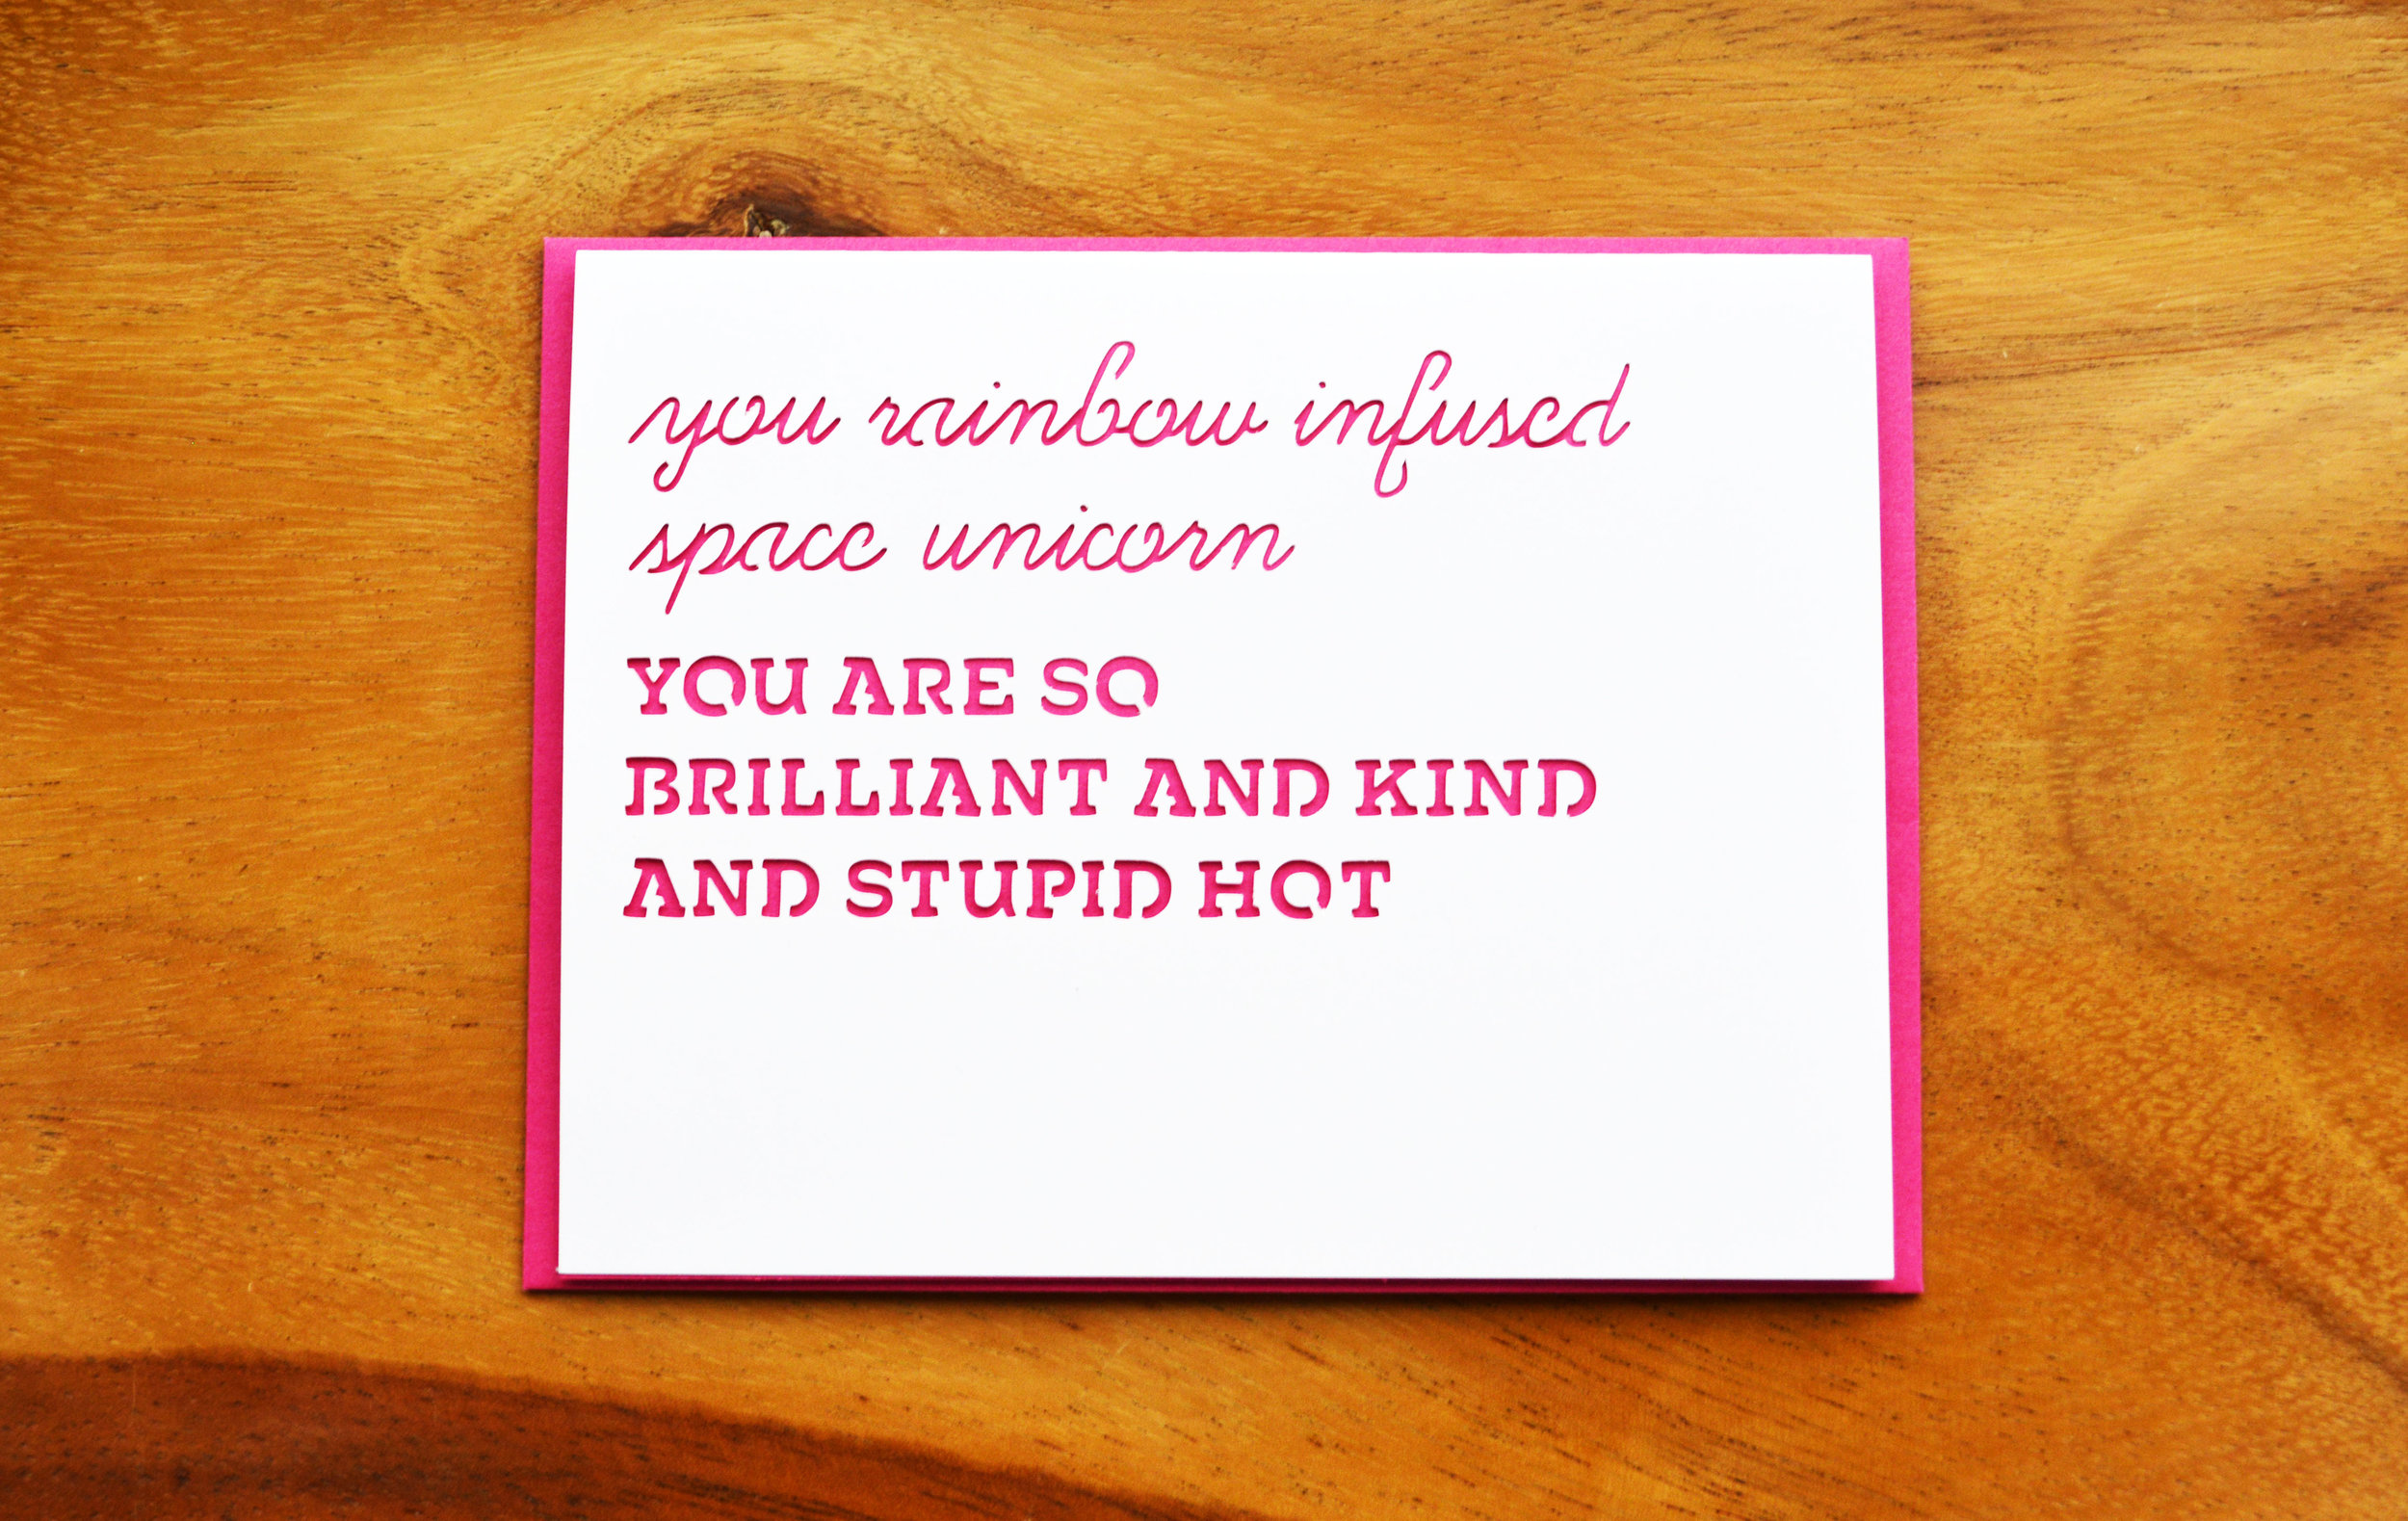 you rainbow infused
space unicorn
YOU ARE SO
BRILLIANT AND KIND
AND STUPID HOT